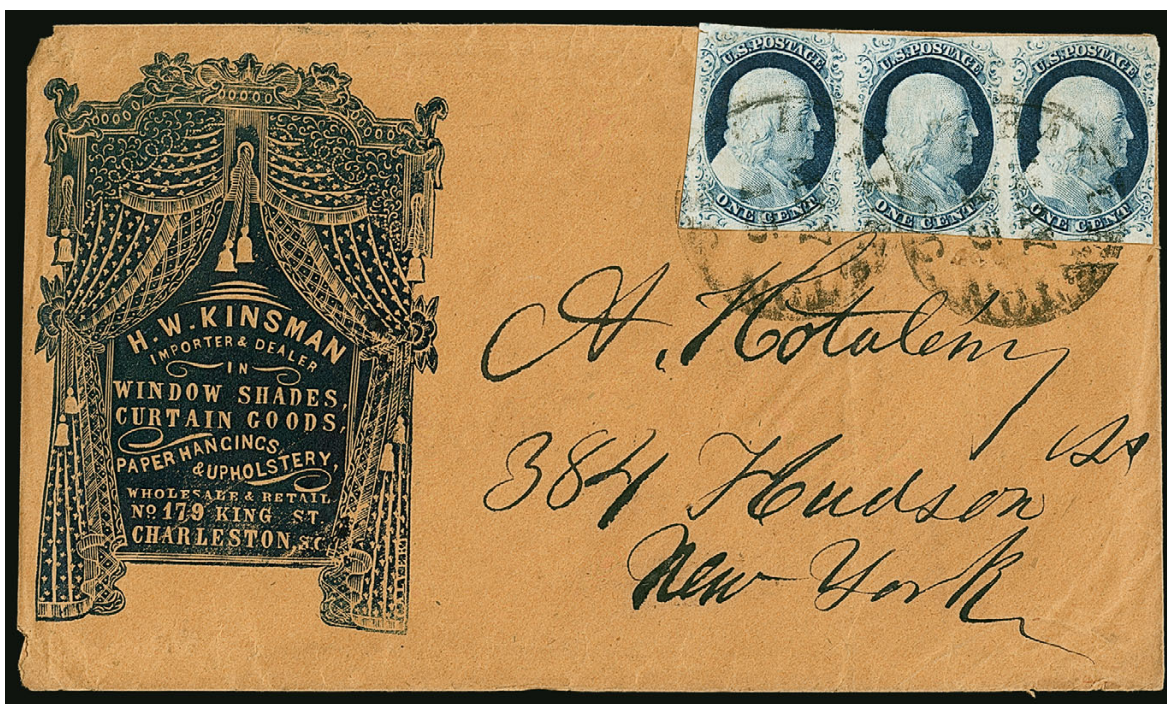 H. W. KINSMAN
IMPORTER & DEALER
IN
WINDOW SHADES,
CURTAIN GOODS,
PAPER HANGINGS,
& UPHOLSTERY,
WHOLESALE & RETAIL
No 179 KING ST.
CHARLESTON, S.C.
U.S. POSTAGE
ONE CENT
U.S. POSTAGE
ONE CENT
U.S. POSTAGE
ONE CENT
A.
384 Hudson St
New York